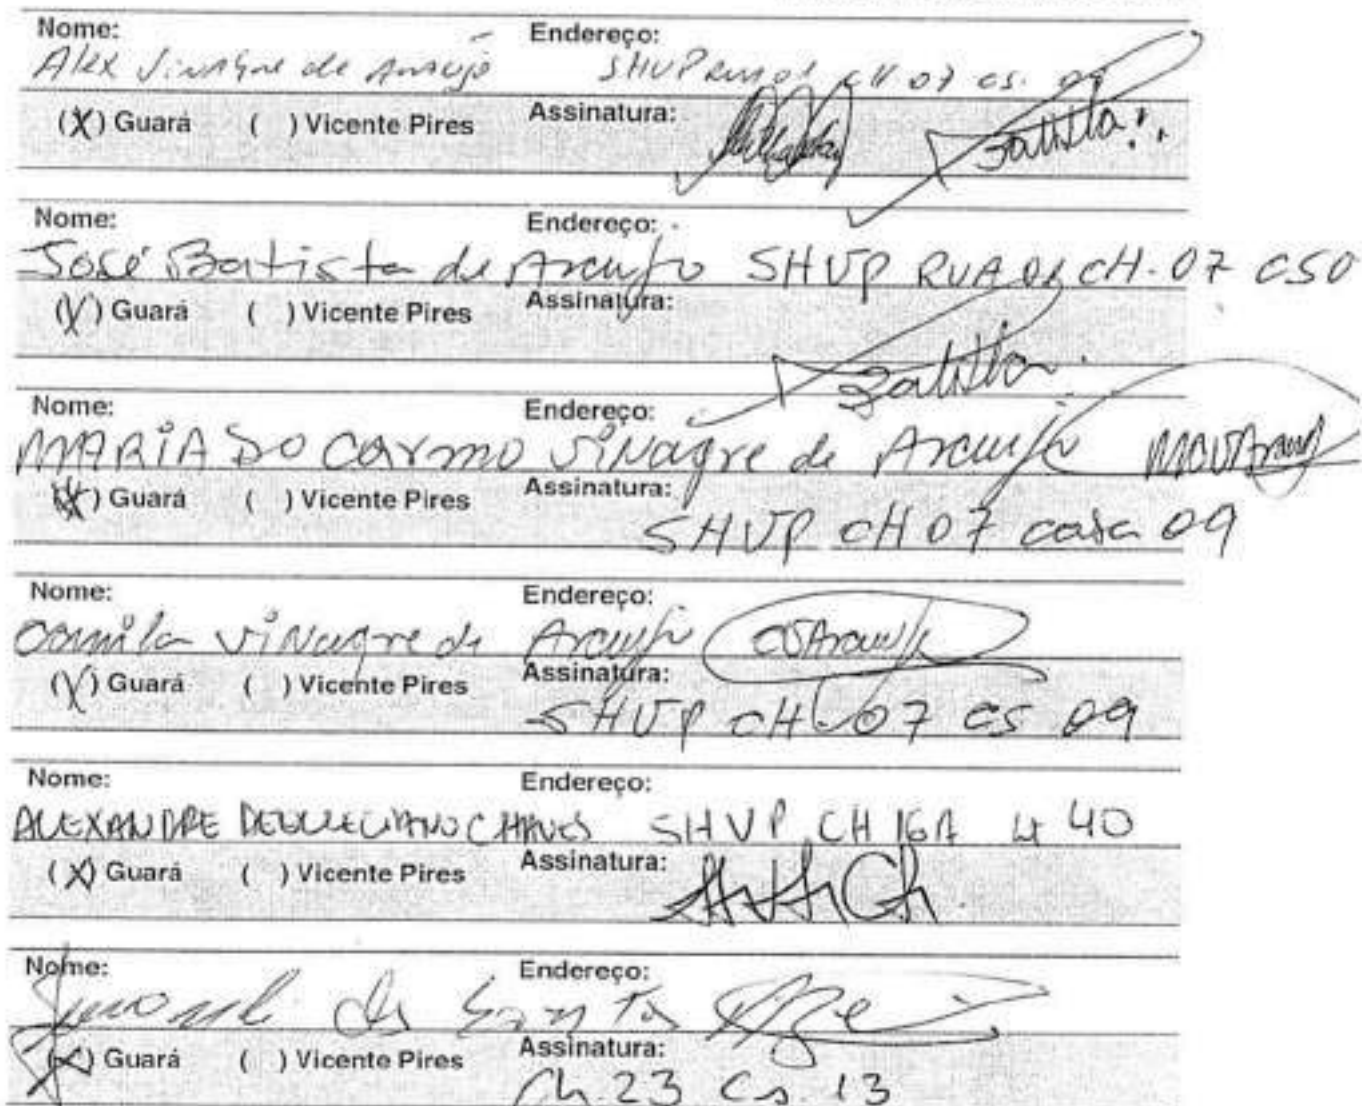 Nome: Endereço:
Alex Vinagre de Araujo SHVP Rua 01 CH 07 cs. 09
(X) Guará ( ) Vicente Pires Assinatura: Batista
Nome: Endereço:
José Batista de Araujo SHVP RUA 01 CH-07 CS0
(X) Guará ( ) Vicente Pires Assinatura:
Batista
Nome: Endereço:
MARIA DO Carmo Vinagre de Araujo
(X) Guará ( ) Vicente Pires Assinatura:
SHVP CH 07 casa 09
Nome: Endereço:
Camila Vinagre de Araujo CVAraujo
(X) Guará ( ) Vicente Pires Assinatura:
SHVP CH 07 CS 09
Nome: Endereço:
ALEXANDRE CHAVES SHVP CH 16A Lt 40
(X) Guará ( ) Vicente Pires Assinatura:
Nome: Endereço:
(X) Guará ( ) Vicente Pires Assinatura:
Ch. 23 Cs. 13